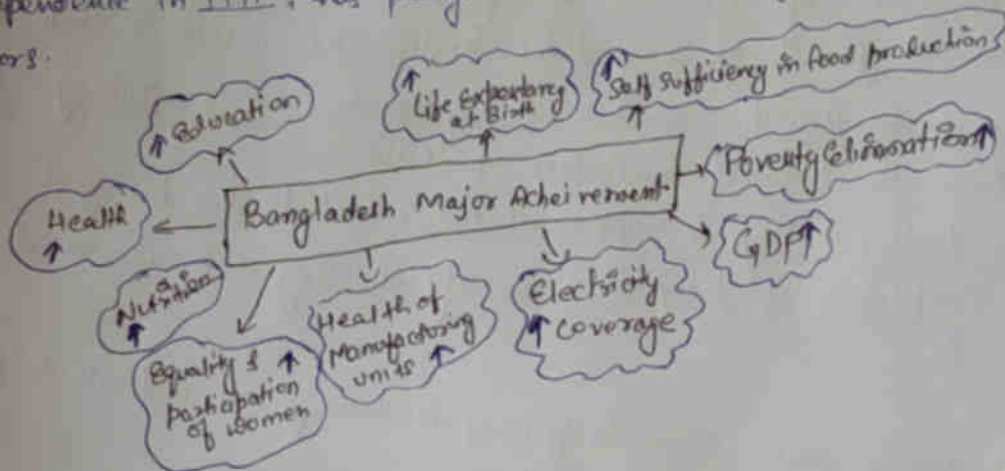 in 1971, its
ors.
↑ Education
↑ Life Expectancy
at Birth
↑ Self Sufficiency in food production
Poverty elimination ↑
GDP ↑
Bangladesh Major Acheivement
Health
↑
Nutrition
↑
Equality & ↑
Participation
of women
Health of
Manufactoring
units ↑
Electricity
↑ coverage